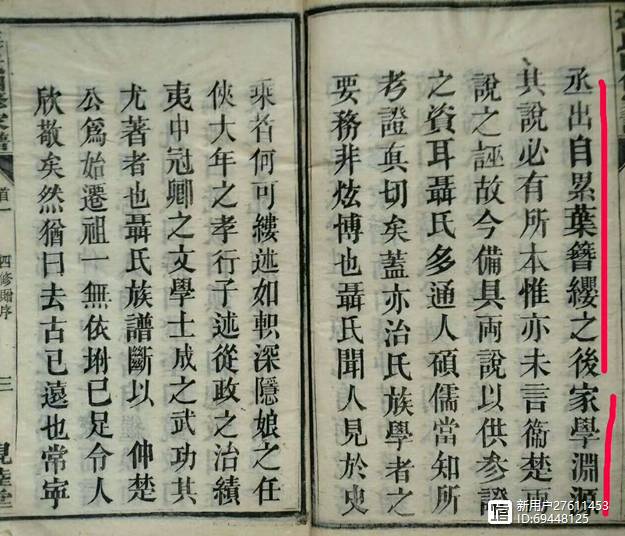 丞出自累葉簪纓之後家學淵源
其說必有所本惟亦未言衞楚兩
說之誣故今備具両說以供參證
之資耳聶氏多通人碩儒當知所
考證眞切矣蓋亦治氏族學者之
要務非炫博也聶氏聞人見於史
乘者何可縷述如軹深隱娘之任
俠大年之孝行子述從政之治績
夷中冠卿之文學士成之武功其
尤著者也聶氏族譜斷以 仲楚
公爲始遷祖一無依坿已足令人
欣敬矣然猶曰去古已遠也常寧
首一
四修贈序
三
新用户27611453
ID:69448125